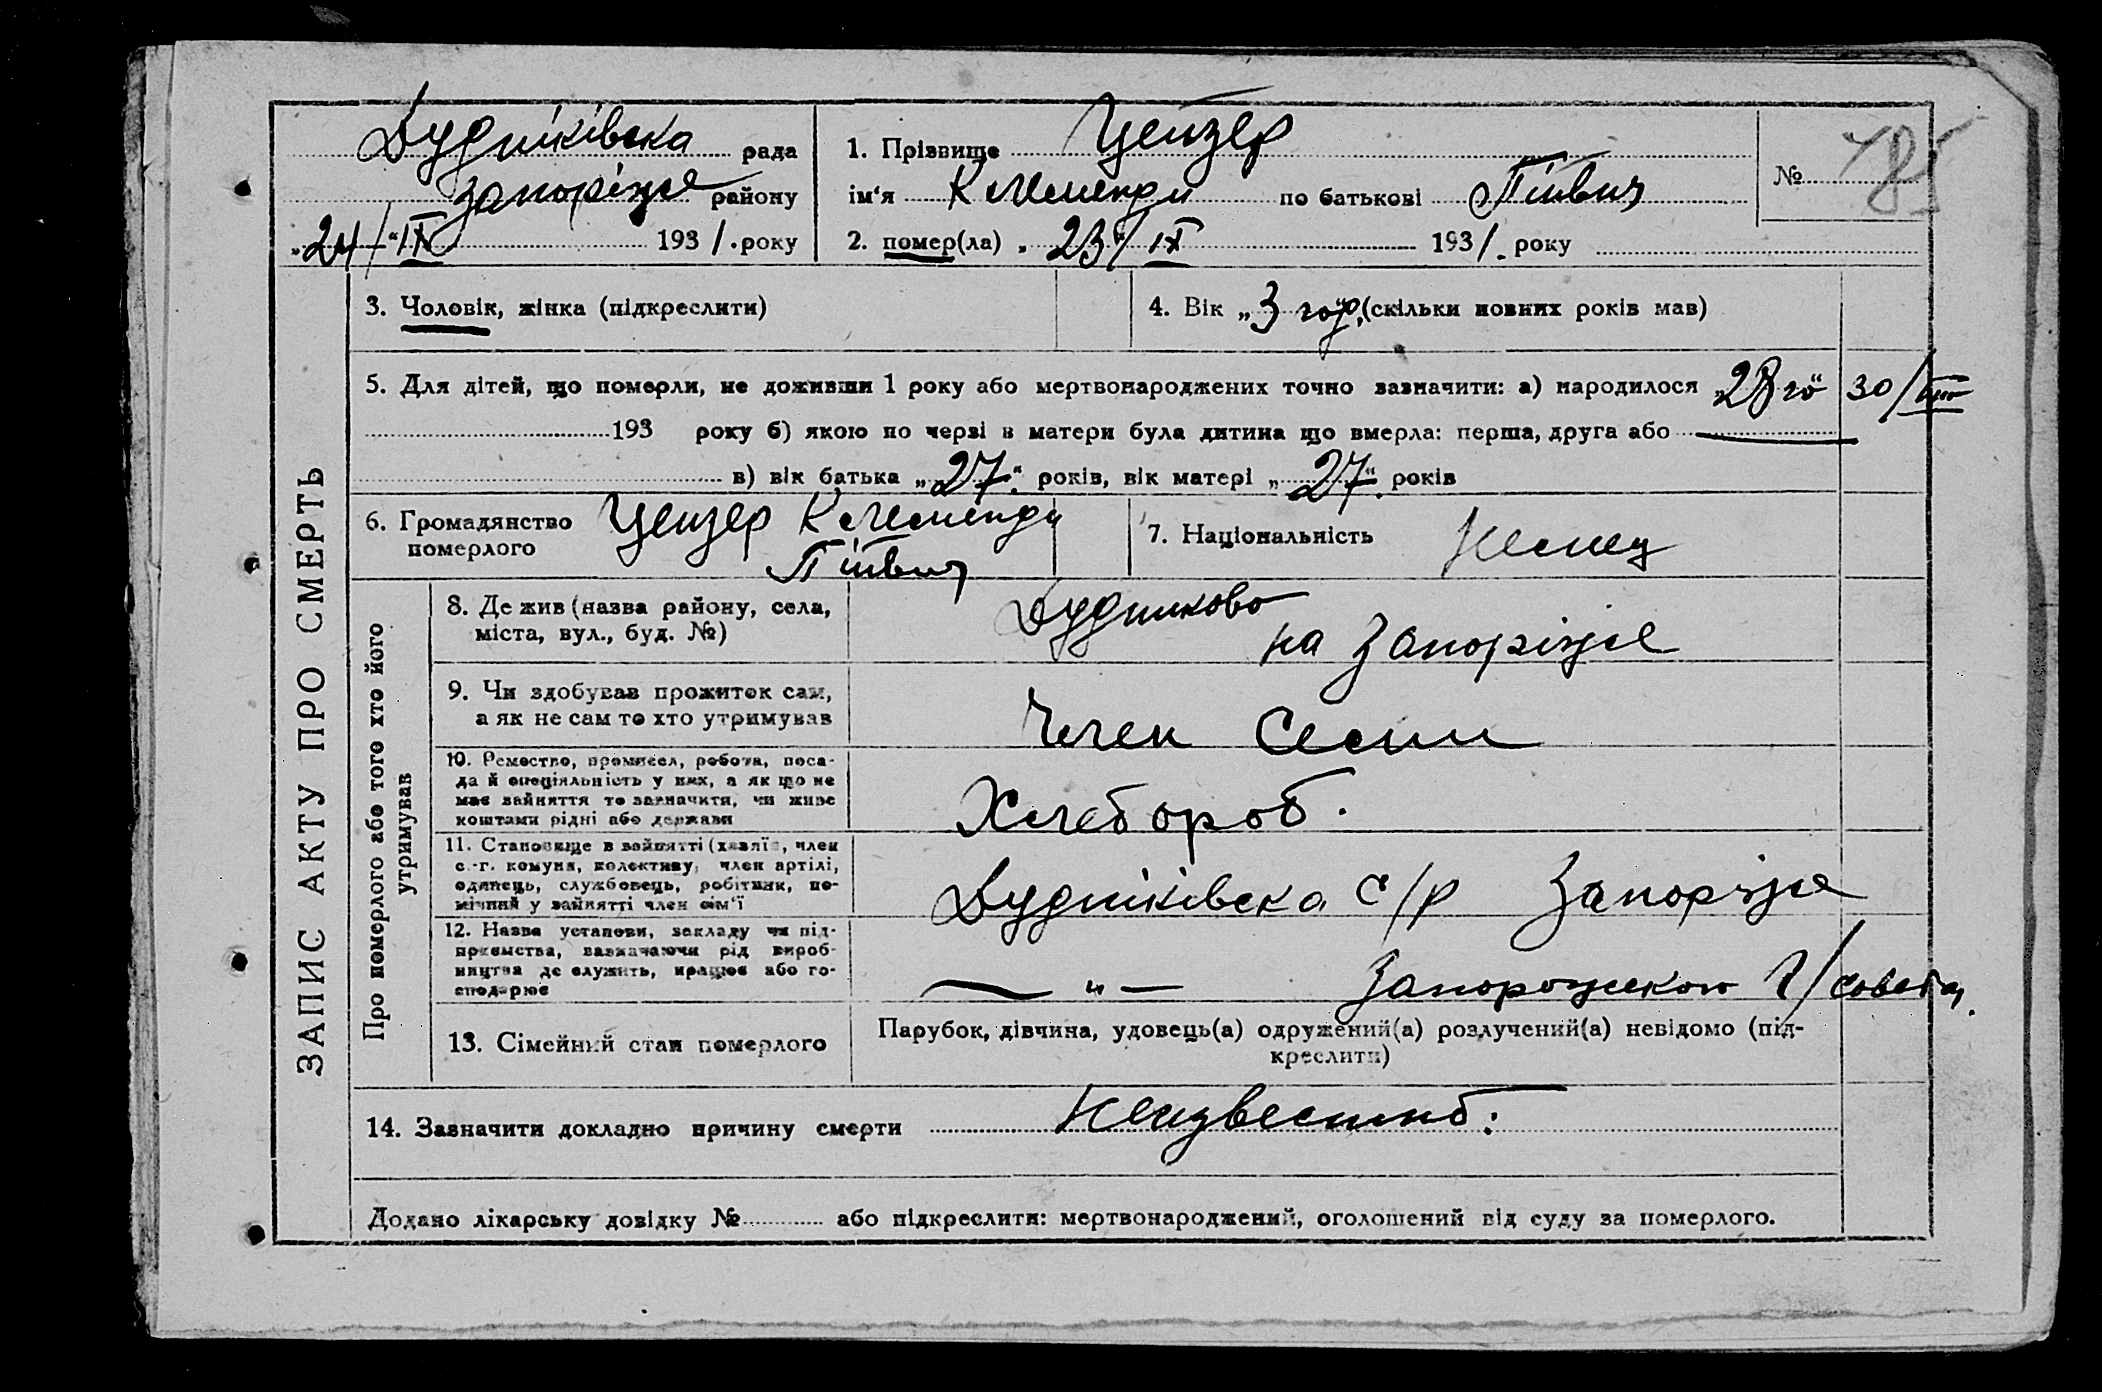 Дудніківська рада
Запоріжже району
„24/“ IX 1931. року
1. Прізвище Цейзер
ім‘я Клеменди по батькові Пітвич
2. помер(ла) „23/“ IX 1931. року
№ 785
ЗАПИС АКТУ ПРО СМЕРТЬ
3. Чоловік, жінка (підкреслити)
4. Вік „3 год.“ (скільки повних років мав)
5. Для дітей, що померли, не доживши 1 року або мертвонароджених точно зазначити: а) народилося „28 го“ 30/VIII
193 року б) якою по черзі в матери була дитина що вмерла: перша, друга або
в) вік батька „27“ років, вік матері „27“ років
6. Громадянство Цейзер Клеменди
померлого Пітвич
7. Національність Немец
Про померлого або того хто його
утримував
8. Де жив (назва району, села,
міста, вул., буд. №)
Дудниково
на Запоріжже
9. Чи здобував прожиток сам,
а як не сам то хто утримував
Член Семии
10. Ремество, промисел, робота, поса-
да й спеціяльність у них, а як що не
має зайняття то зазначити, чи живе
коштами рідні або держави
Хлебороб.
11. Становище в зайнятті (хазяїн, член
с.-г. комуни, колективу, член артілі,
одинець, службовець, робітник, по-
мічний у зайнятті член сім‘ї
Дудніківска с/р Запоріжже
12. Назва установи, закладу чи під-
приємства, зазначаючи рід вироб-
ництва де служить, працює або го-
сподарює
— „ — Запорожского г/совета.
13. Сімейний стан померлого
Парубок, дівчина, удовець(а) одружений(а) розлучений(а) невідомо (під-
креслити)
14. Зазначити докладно причину смерти Неизвестно.
Додано лікарську довідку № або підкреслити: мертвонароджений, оголошений від суду за померлого.